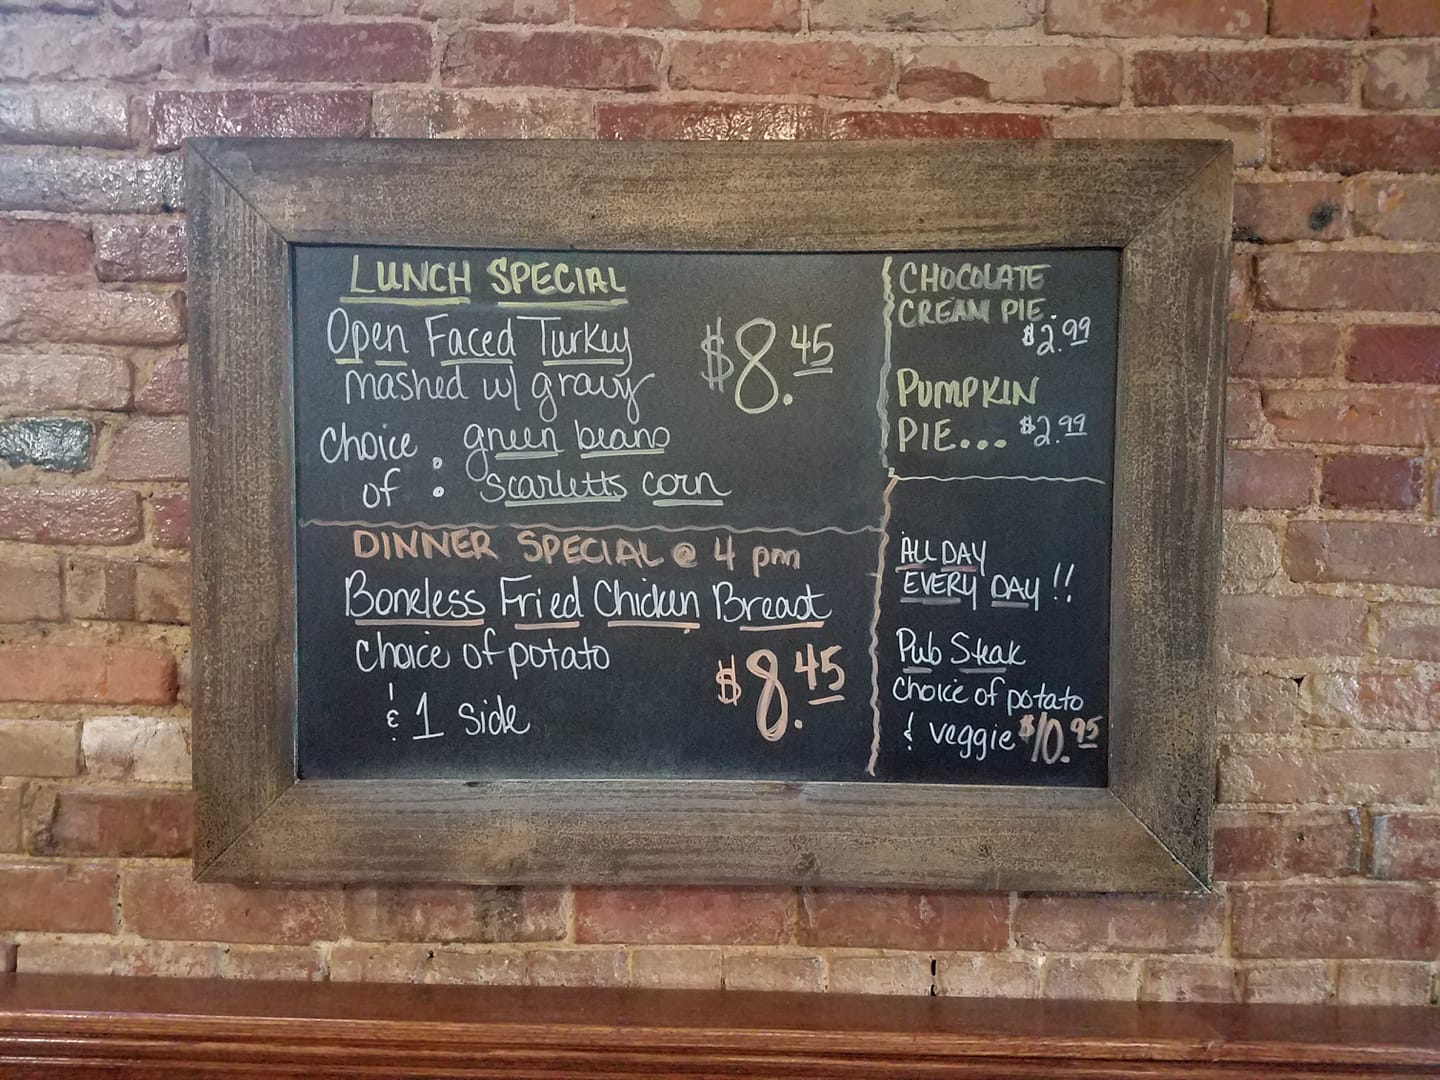 LUNCH SPECIAL
Open Faced Turkey
mashed w/ gravy
$8.45
choice of : green beans
scarletts corn
DINNER SPECIAL @ 4 pm
Boneless Fried Chicken Breast
choice of potato
& 1 side
$8.45
CHOCOLATE
CREAM PIE.
$2.99
PUMPKIN
PIE... $2.99
ALL DAY
EVERY DAY !!
Pub Steak
choice of potato
& veggie $10.95